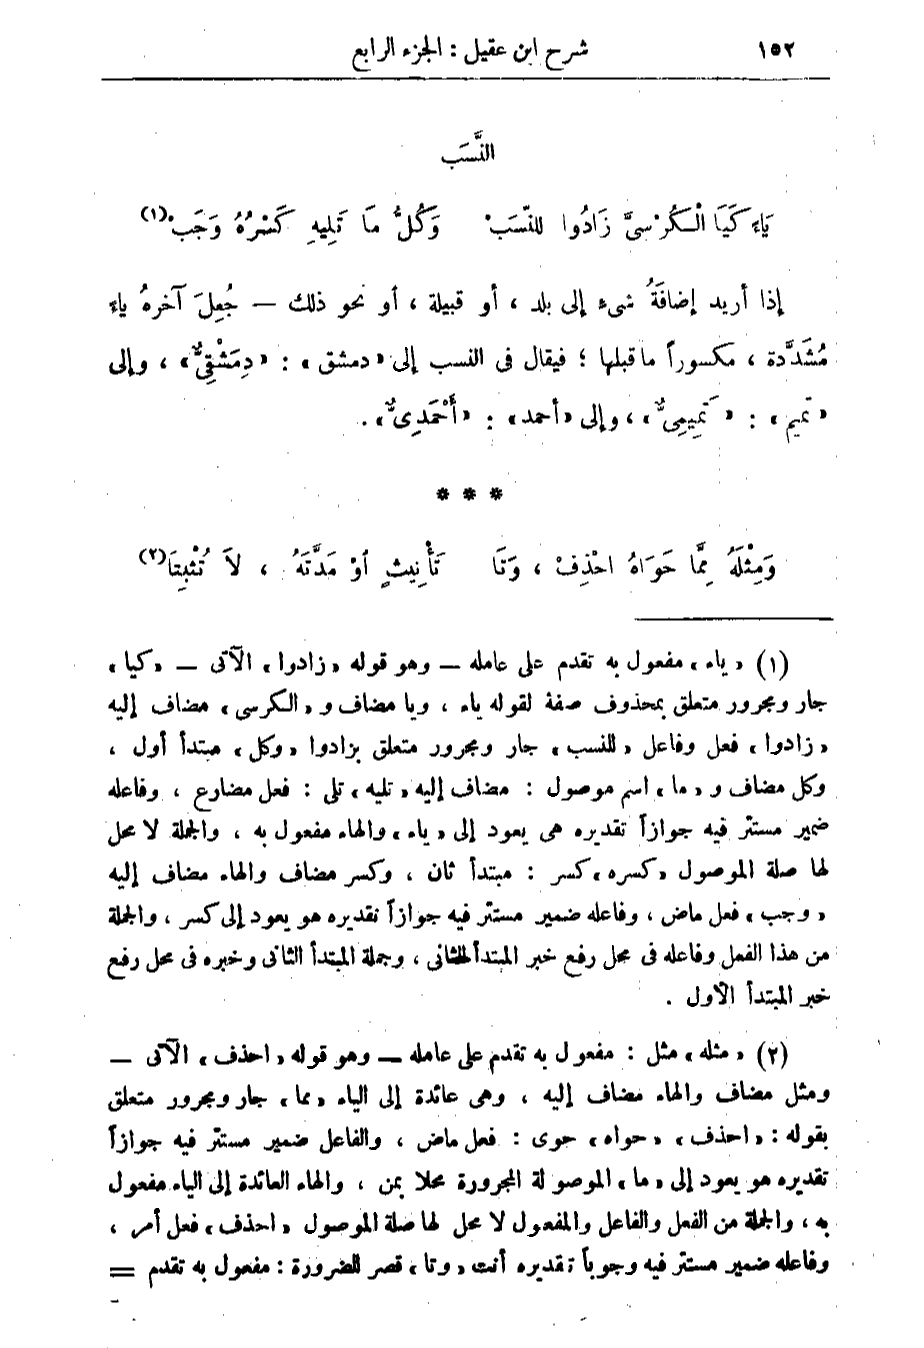 ١٥٢ شرح ابن عقيل : الجزء الرابع
النَّسَب
يَاءً كَيَا الْكُرْسِىِّ زَادُوا للنَّسَبْ وَكُلُّ مَا تَلِيهِ كَسْرُهُ وَجَبْ(١)
إذا أريد إضافَةُ شىء إلى بلد ، أو قبيلة ، أو نحو ذلك — جُعِلَ آخرهُ ياءً
مُشَدَّدة ، مكسوراً ما قبلها ؛ فيقال فى النسب إلى «دمشق» : «دِمَشْقِىٌّ» ، وإلى
«تميم» : «تَمِيمِىٌّ» ، وإلى «أحمد» : «أَحْمَدِىٌّ» .
* * *
وَمِثْلَهُ مِمَّا حَوَاهُ احْذِفْ ، وَتَا تَأْنِيثٍ أوْ مَدَّتَهُ ، لاَ تُثْبِتَا(٢)
(١) «ياء» مفعول به تقدم على عامله — وهو قوله «زادوا» الآتى — «كيا»
جار ومجرور متعلق بمحذوف صفة لقوله ياء ، ويا مضاف و «الكرسى» مضاف إليه
«زادوا» فعل وفاعل «للنسب» جار ومجرور متعلق بزادوا «وكل» مبتدأ أول ،
وكل مضاف و «ما» اسم موصول : مضاف إليه «تليه» تلى : فعل مضارع ، وفاعله
ضمير مستتر فيه جوازاً تقديره هى يعود إلى «ياء» والهاء مفعول به ، والجملة لا محل
لها صلة الموصول «كسره» كسر : مبتدأ ثان ، وكسر مضاف والهاء مضاف إليه
«وجب» فعل ماض ، وفاعله ضمير مستتر فيه جوازاً تقديره هو يعود إلى كسر ، والجملة
من هذا الفعل وفاعله فى محل رفع خبر المبتدأ الثانى ، وجملة المبتدأ الثانى وخبره فى محل رفع
خبر المبتدأ الأول .
(٢) «مثله» مثل : مفعول به تقدم على عامله — وهو قوله «احذف» الآتى —
ومثل مضاف والهاء مضاف إليه ، وهى عائدة إلى الياء «مما» جار ومجرور متعلق
بقوله : «احذف» «حواه» حوى : فعل ماض ، والفاعل ضمير مستتر فيه جوازاً
تقديره هو يعود إلى «ما» الموصولة المجرورة محلا بمن ، والهاء العائدة إلى الياء مفعول
به ، والجملة من الفعل والفاعل والمفعول لا محل لها صلة الموصول «احذف» فعل أمر ،
وفاعله ضمير مستتر فيه وجوباً تقديره أنت «وتا» قصر للضرورة : مفعول به تقدم =